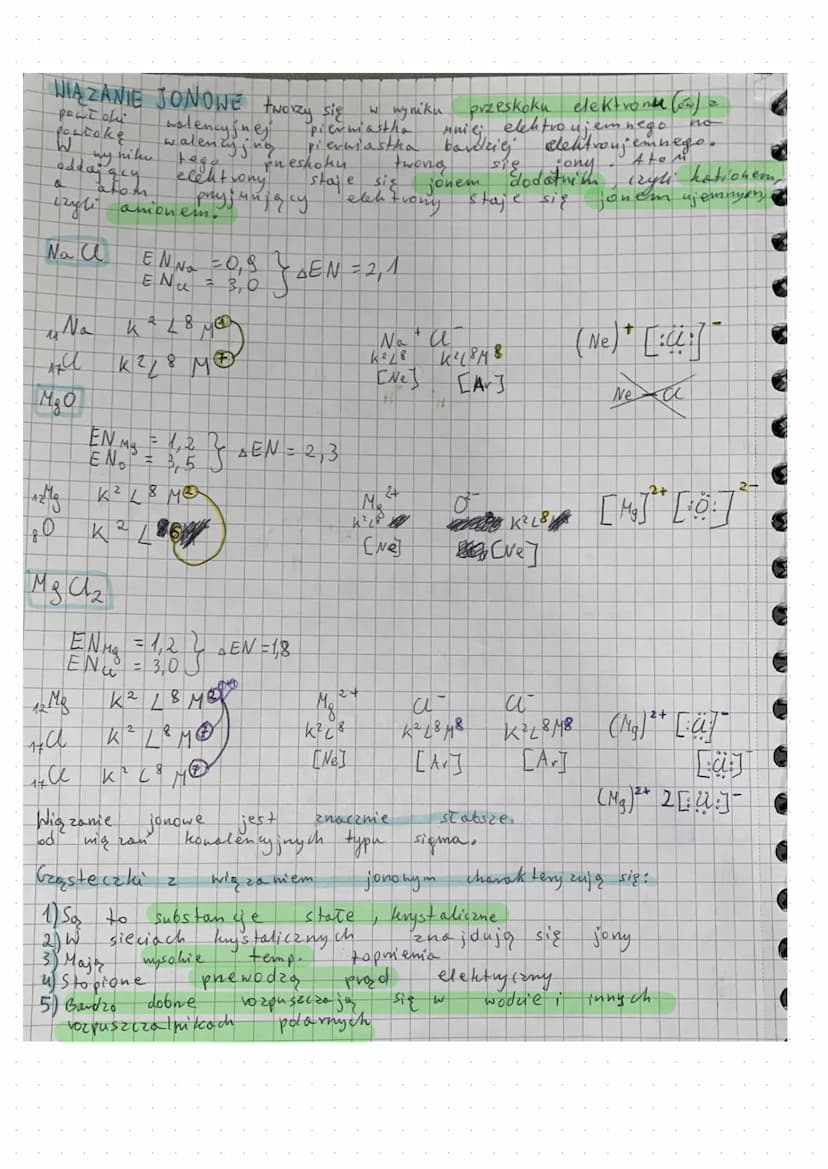 WIĄZANIE JONOWE tworzy się w wyniku przeskoku elektronu (ów) z
powłoki walencyjnej pierwiastka mniej elektroujemnego na
powłokę walencyjną pierwiastka bardziej elektroujemnego.
W wyniku tego przeskoku tworzą się jony. Atom
oddający elektrony staje się jonem dodatnim, czyli kationem,
a atom przyjmujący elektrony staje się jonem ujemnym,
czyli anionem.
NaCl EN Na = 0,9 } ΔEN = 2,1
EN Cl = 3,0
₁₁Na K² L⁸ M¹ Na⁺ Cl⁻ (Ne)⁺ [:C̈l:]⁻
K²L⁸ K²L⁸M⁸
₁₇Cl K² L⁸ M⁷ [Ne] [Ar] Ne – Cl
MgO
EN Mg = 1,2 } ΔEN = 2,3
EN O = 3,5
₁₂Mg K² L⁸ M² Mg²⁺ O²⁻ [Mg]²⁺ [:Ö:]²⁻
K²L⁸ K²L⁸
₈O K² L⁶ [Ne] [Ne]
MgCl₂
EN Mg = 1,2 } ΔEN = 1,8
EN Cl = 3,0
₁₂Mg K² L⁸ M² Mg²⁺ Cl⁻ Cl⁻
₁₇Cl K² L⁸ M⁷ K²L⁸ K²L⁸M⁸ K²L⁸M⁸ (Mg)²⁺ [:C̈l:]⁻
[Ne] [Ar] [Ar] [:C̈l:]⁻
₁₇Cl K² L⁸ M⁷
(Mg)²⁺ 2[:C̈l:]⁻
Wiązanie jonowe jest znacznie słabsze
od wiązań kowalencyjnych typu sigma.
Cząsteczki z wiązaniem jonowym charakteryzują się:
1) Są to substancje stałe, krystaliczne
2) W sieciach krystalicznych znajdują się jony
3) Mają wysokie temp. topnienia
4) Stopione przewodzą prąd elektryczny
5) Bardzo dobrze rozpuszczają się w wodzie i innych
rozpuszczalnikach polarnych